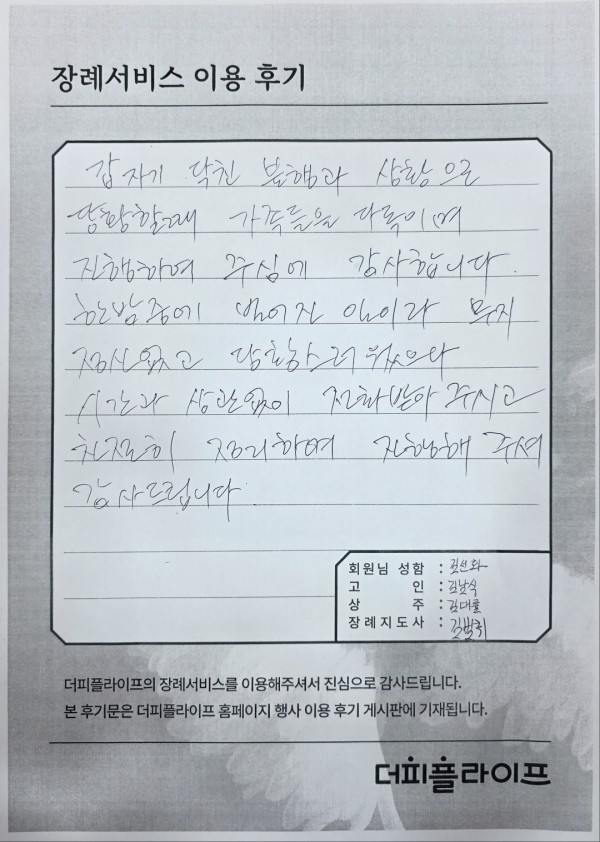 장례서비스 이용 후기
갑자기 닥친 불행과 상황으로
당황할때 가족들을 다독이며
진행하여 주심에 감사합니다.
한밤중에 벌어진 일이라 무지
정신없고 당황스러웠으나
시간과 상관없이 전화받아 주시고
친절히 정리하며 진행해 주셔
감사드립니다.
회원님 성함 : 김선화
고 인 : 김남식
상 주 : 김대훈
장례지도사 :
더피플라이프의 장례서비스를 이용해주셔서 진심으로 감사드립니다.
본 후기문은 더피플라이프 홈페이지 행사 이용 후기 게시판에 기재됩니다.
더피플라이프